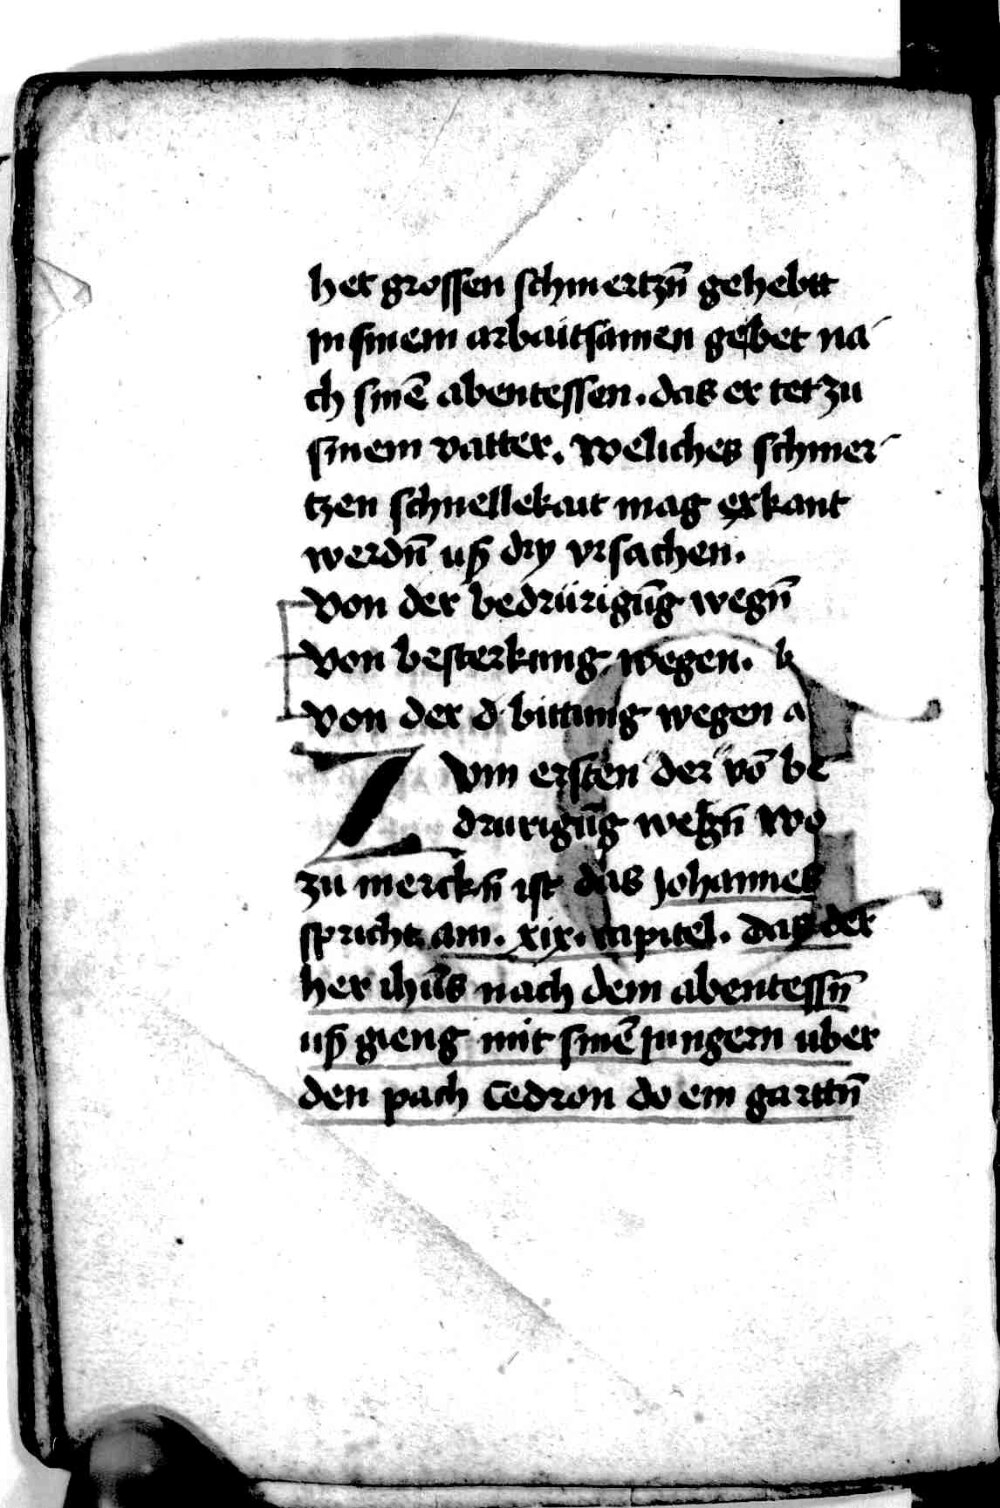 het grossen schmertzn̄ gehebtt
jn sinem arbaitsamen gebet na
ch sinē abentessen. das er tet zu
sinem vatter. weliches schmer
tzen schnellekait mag erkant
werdn̄ uß dry vrsachen.
von der bedrürigūg wegn̄
von besterkung wegen. b
von der d bittung wegen a
Zvm ersten der vō be
drurigūg wegn̄ wo
zu merckn̄ ist das Johannes
spricht am. xix. capitel. das der
her ihūs nach dem abentessn̄
uß gieng mit sinē jungern uber
den pach Cedron do ein garttn̄